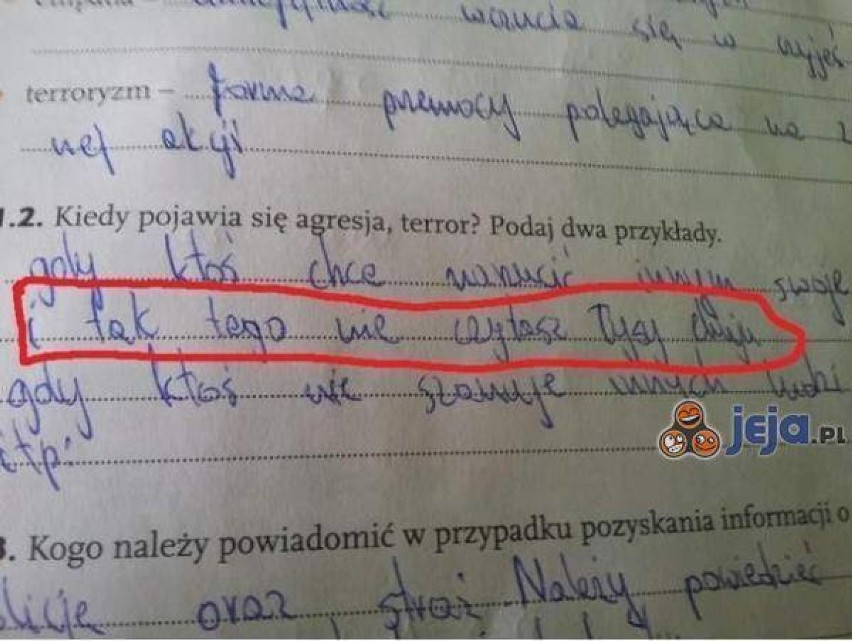 wczucia się w czyjeś
terroryzm – forma przemocy polegająca na z
nej akcji
1.2. Kiedy pojawia się agresja, terror? Podaj dwa przykłady.
gdy ktoś chce narzucić innym swoje
i tak tego nie czytasz Łysy chuju
gdy ktoś nie szanuje innych ludzi
itp.
jeja.PL
3. Kogo należy powiadomić w przypadku pozyskania informacji o
olicję oraz straż. Należy powiedzieć